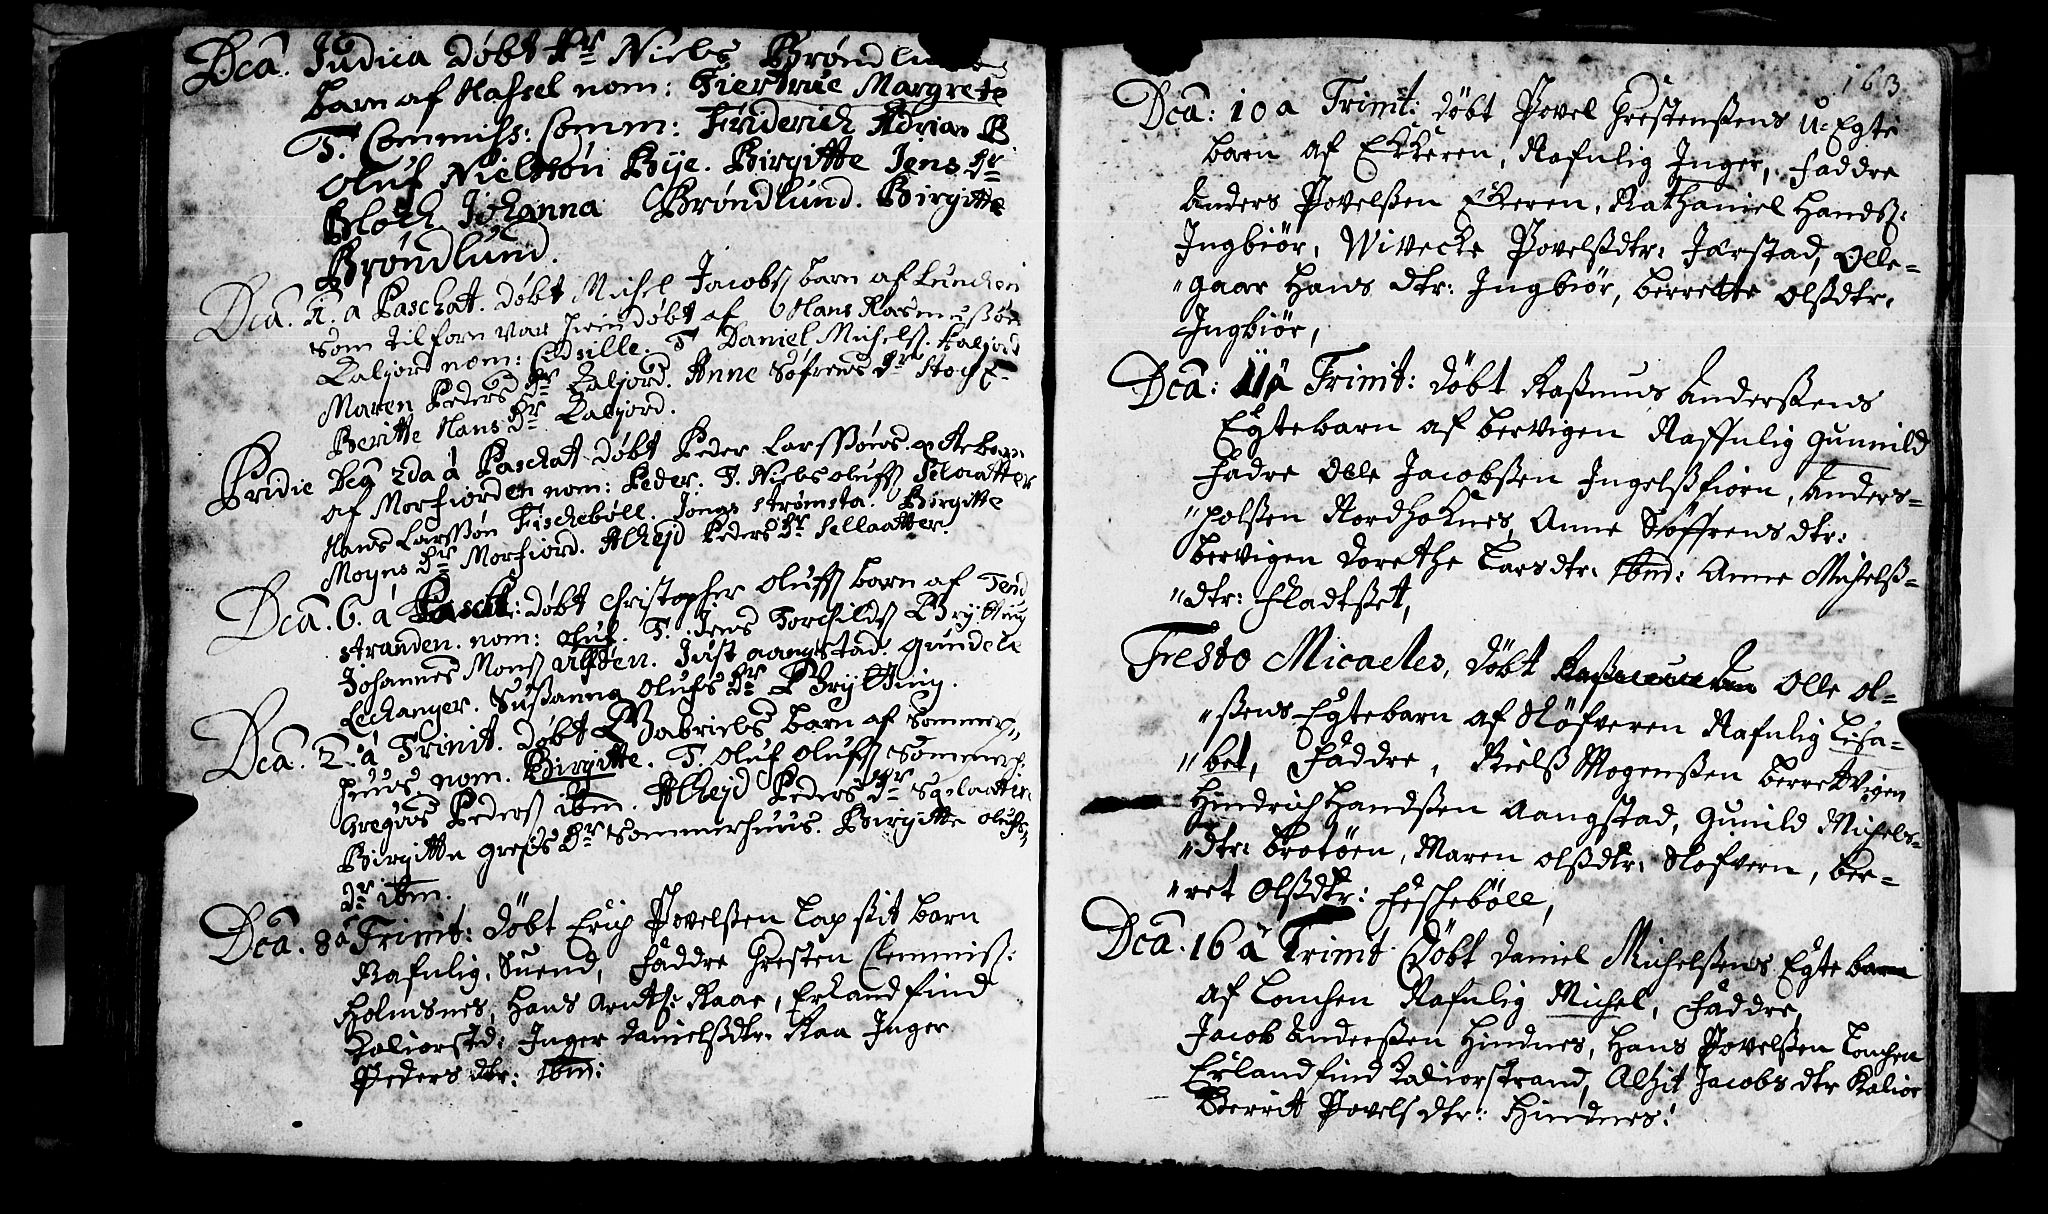 Dca. Judica døbt Hr Niels Brøndlunds
barn af Hassel nom: Giertrue Margrete
T. Commiss: Comm: Friderich Adrian B
Oluf Nielssøn Bye. Birgitte Jens Dr
Bloch Johanna Brøndlund. Birgitte
Brøndlund.
Dca. 1. a Paschat. døbt Michel Jacobs barn af Lunchen
som tilforn var hiemdøbt af Hans Rasmussøn
Kaljord nom: Cidsille. T. Daniel Michels. Kaljord
Maren Peders Dr Kaljord. Anne Søfrens Dr
Beritte Hans Dr Kaljord.
Pridie Dca 2da á Paschat døbt Peder Larssøns ectebarn
af Morfiorden nom: Peder. T. Niels Olufs Selaatter
Hans Larssøn Fischebøll. Jonas Strømsta. Birgitte
Moyns Dr Morfiord. Alheid Peders Dr Sellaatter.
Dca. 6. á Pasch: døbt Christopher Olufs barn af Tend
stranden. nom: Oluf. T. Jens Torchilds Brytting
Johannes Mons Ulften. Just aangstad. Gundele
Lechanger. Susanna Olufs Dr Brytting.
Dca. 2. á Trinit. døbt Gabriels barn af Sommer,,
huus. nom. Birgitte. T. Oluf Olufs Sommerh:
Gregus Peders ibm. Alheid Peders Dr Selaatter
Birgitte Gregs Dr Sommerhuus. Birgitte Olufs,,
Dr ibm.
Dca. 8 á Trinit: døbt Erich Povelsen Lap sit barn
Nafnlig. Suend, faddre Chresten Clemmiss:
Holmsnes, Hans Arntz: Raae, Erland find
Kaliorstd: Inger Danielsdtr. Raa Inger
Peders dtr: ibm:
163
Dca: 10 a Trinit: døbt Povel Chrestensens U-Egte
barn af Ekkeren, Nafnlig Inger, faddre
Anders Povelsen Ekeren, Nathaniel Hands:
Ingbiør, Wivecke Povelsdtr: Jørstad, Olle-
"gaar Hans dtr: Ingbiør, berrette Olsdtr.
Ingbiør,
Dca: 11 á Trinit: døbt Rasmus Andersens
Egtebarn af bervigen Naffnlig Gunnild
fadre Olle Jacobsen Ingelsfiorn, Anders-
"polsen Nordhoknes, Anne Søffrens dtr:
bervigen dorethe Lars dtr. ibm: Anne Michels-
"dtr: fladtset,
Festo Micaeles, døbt Olle Ol-
"sens Egtebarn af Støfveren Nafnlig Lisa-
"bet, faddre, Niels Mogensen berrettvigen
Hindrich Handsen Aangstad, Gunild Michels-
"dtr: brotøen, Maren Olsdtr: Støfvern, ber-
"ret Olsdtr: feschebøll,
Dca. 16 á Trinit døbt Daniel Michelsens Egte barn
af Lonchen Nafnlig Michel, faddre,
Jacob Andersen Hindnes, Hans Povelsen Lonchen
Erland find Kaliorstrand, Alhit Jacobs dtr Kalior
Berrit Povels dtr: Hindnes: